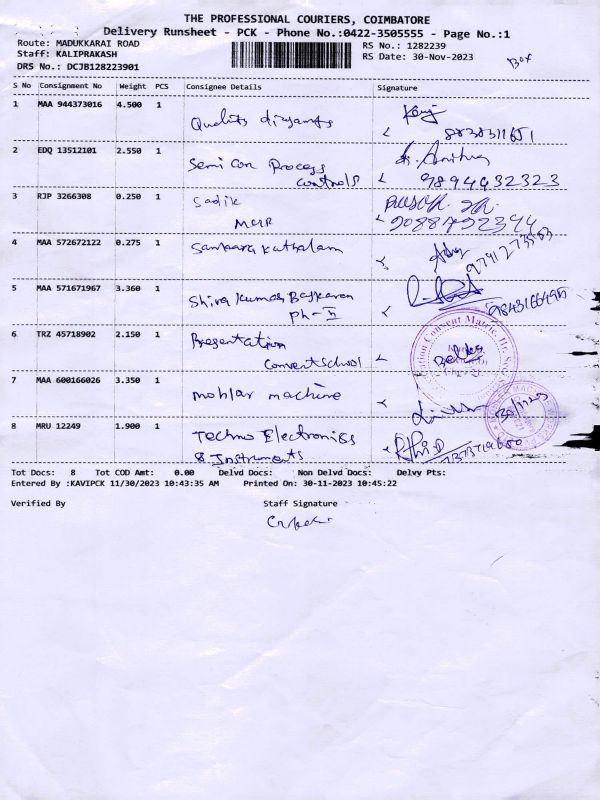 THE PROFESSIONAL COURIERS, COIMBATORE
Delivery Runsheet - PCK - Phone No.:0422-3505555 - Page No.:1
Route: MADUKKARAI ROAD
Staff: KALIPRAKASH
DRS No.: DCJB128223901
RS No.: 1282239
RS Date: 30-Nov-2023
Box
S No Consignment No Weight PCS Consignee Details Signature
1 MAA 944373016 4.500 1 Quality
2 EDQ 13512101 2.550 1 Semi Con Process
Controls
9894432323
3 RJP 3266308 0.250 1 Sadik
4 MAA 572672122 0.275 1
5 MAA 571671967 3.360 1 Shiva Kumar Baskaran
Ph-II
6 TRZ 45718902 2.150 1 Presentation
Convent School
7 MAA 600166026 3.350 1 machine
8 MRU 12249 1.900 1 Techno Electronics
& Instruments
Tot Docs: 8 Tot COD Amt: 0.00 Delvd Docs: Non Delvd Docs: Delvy Pts:
Entered By :KAVIPCK 11/30/2023 10:43:35 AM Printed On: 30-11-2023 10:45:22
Verified By Staff Signature